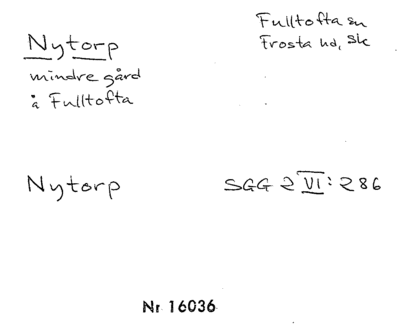 Nytorp
mindre gård
å Fulltofta
Fulltofta sn
Frosta hd, Sk
Nytorp
SGG 2 VI: 286
Nr 16036